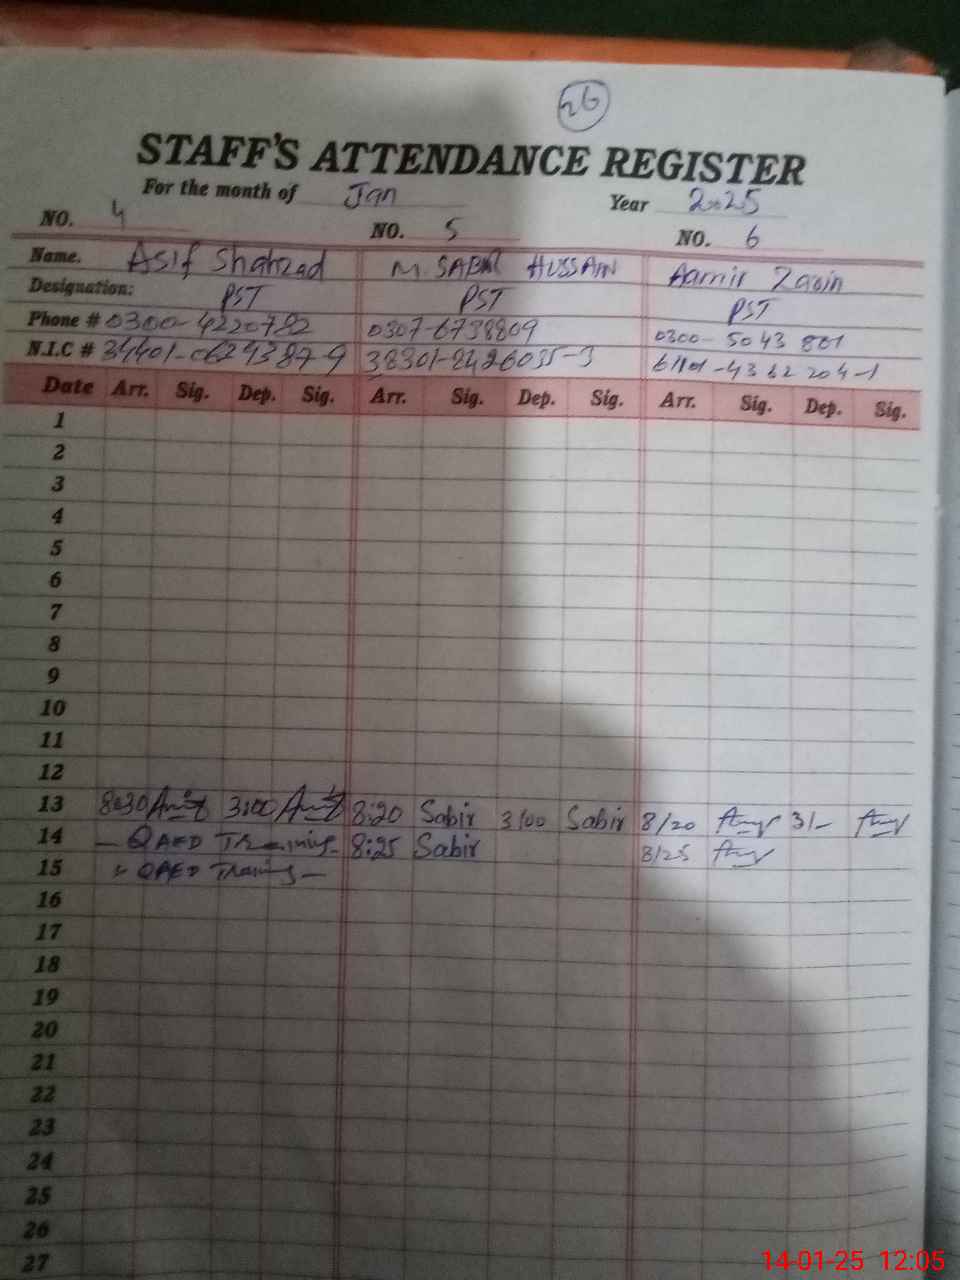 26
STAFF'S ATTENDANCE REGISTER
For the month of Jan Year 2025
NO. 4 NO. 5 NO. 6
Name. Asif Shahzad M. SABIR HUSSAIN Aamir
Designation: PST PST PST
Phone # 0300-4220792 0307-6738809 0300-5043 801
N.I.C # 38301-8426035-3 61101-4362204-1
Date Arr. Sig. Dep. Sig. Arr. Sig. Dep. Sig. Arr. Sig. Dep. Sig.
1
2
3
4
5
6
7
8
9
10
11
12
13 8:30 3:00 8:20 Sabir 3/00 Sabir 8/20 3/-
14 - QAED Training - 8:25 Sabir 8/25
15 QAED Training -
16
17
18
19
20
21
22
23
24
25
26
27
14-01-25 12:05